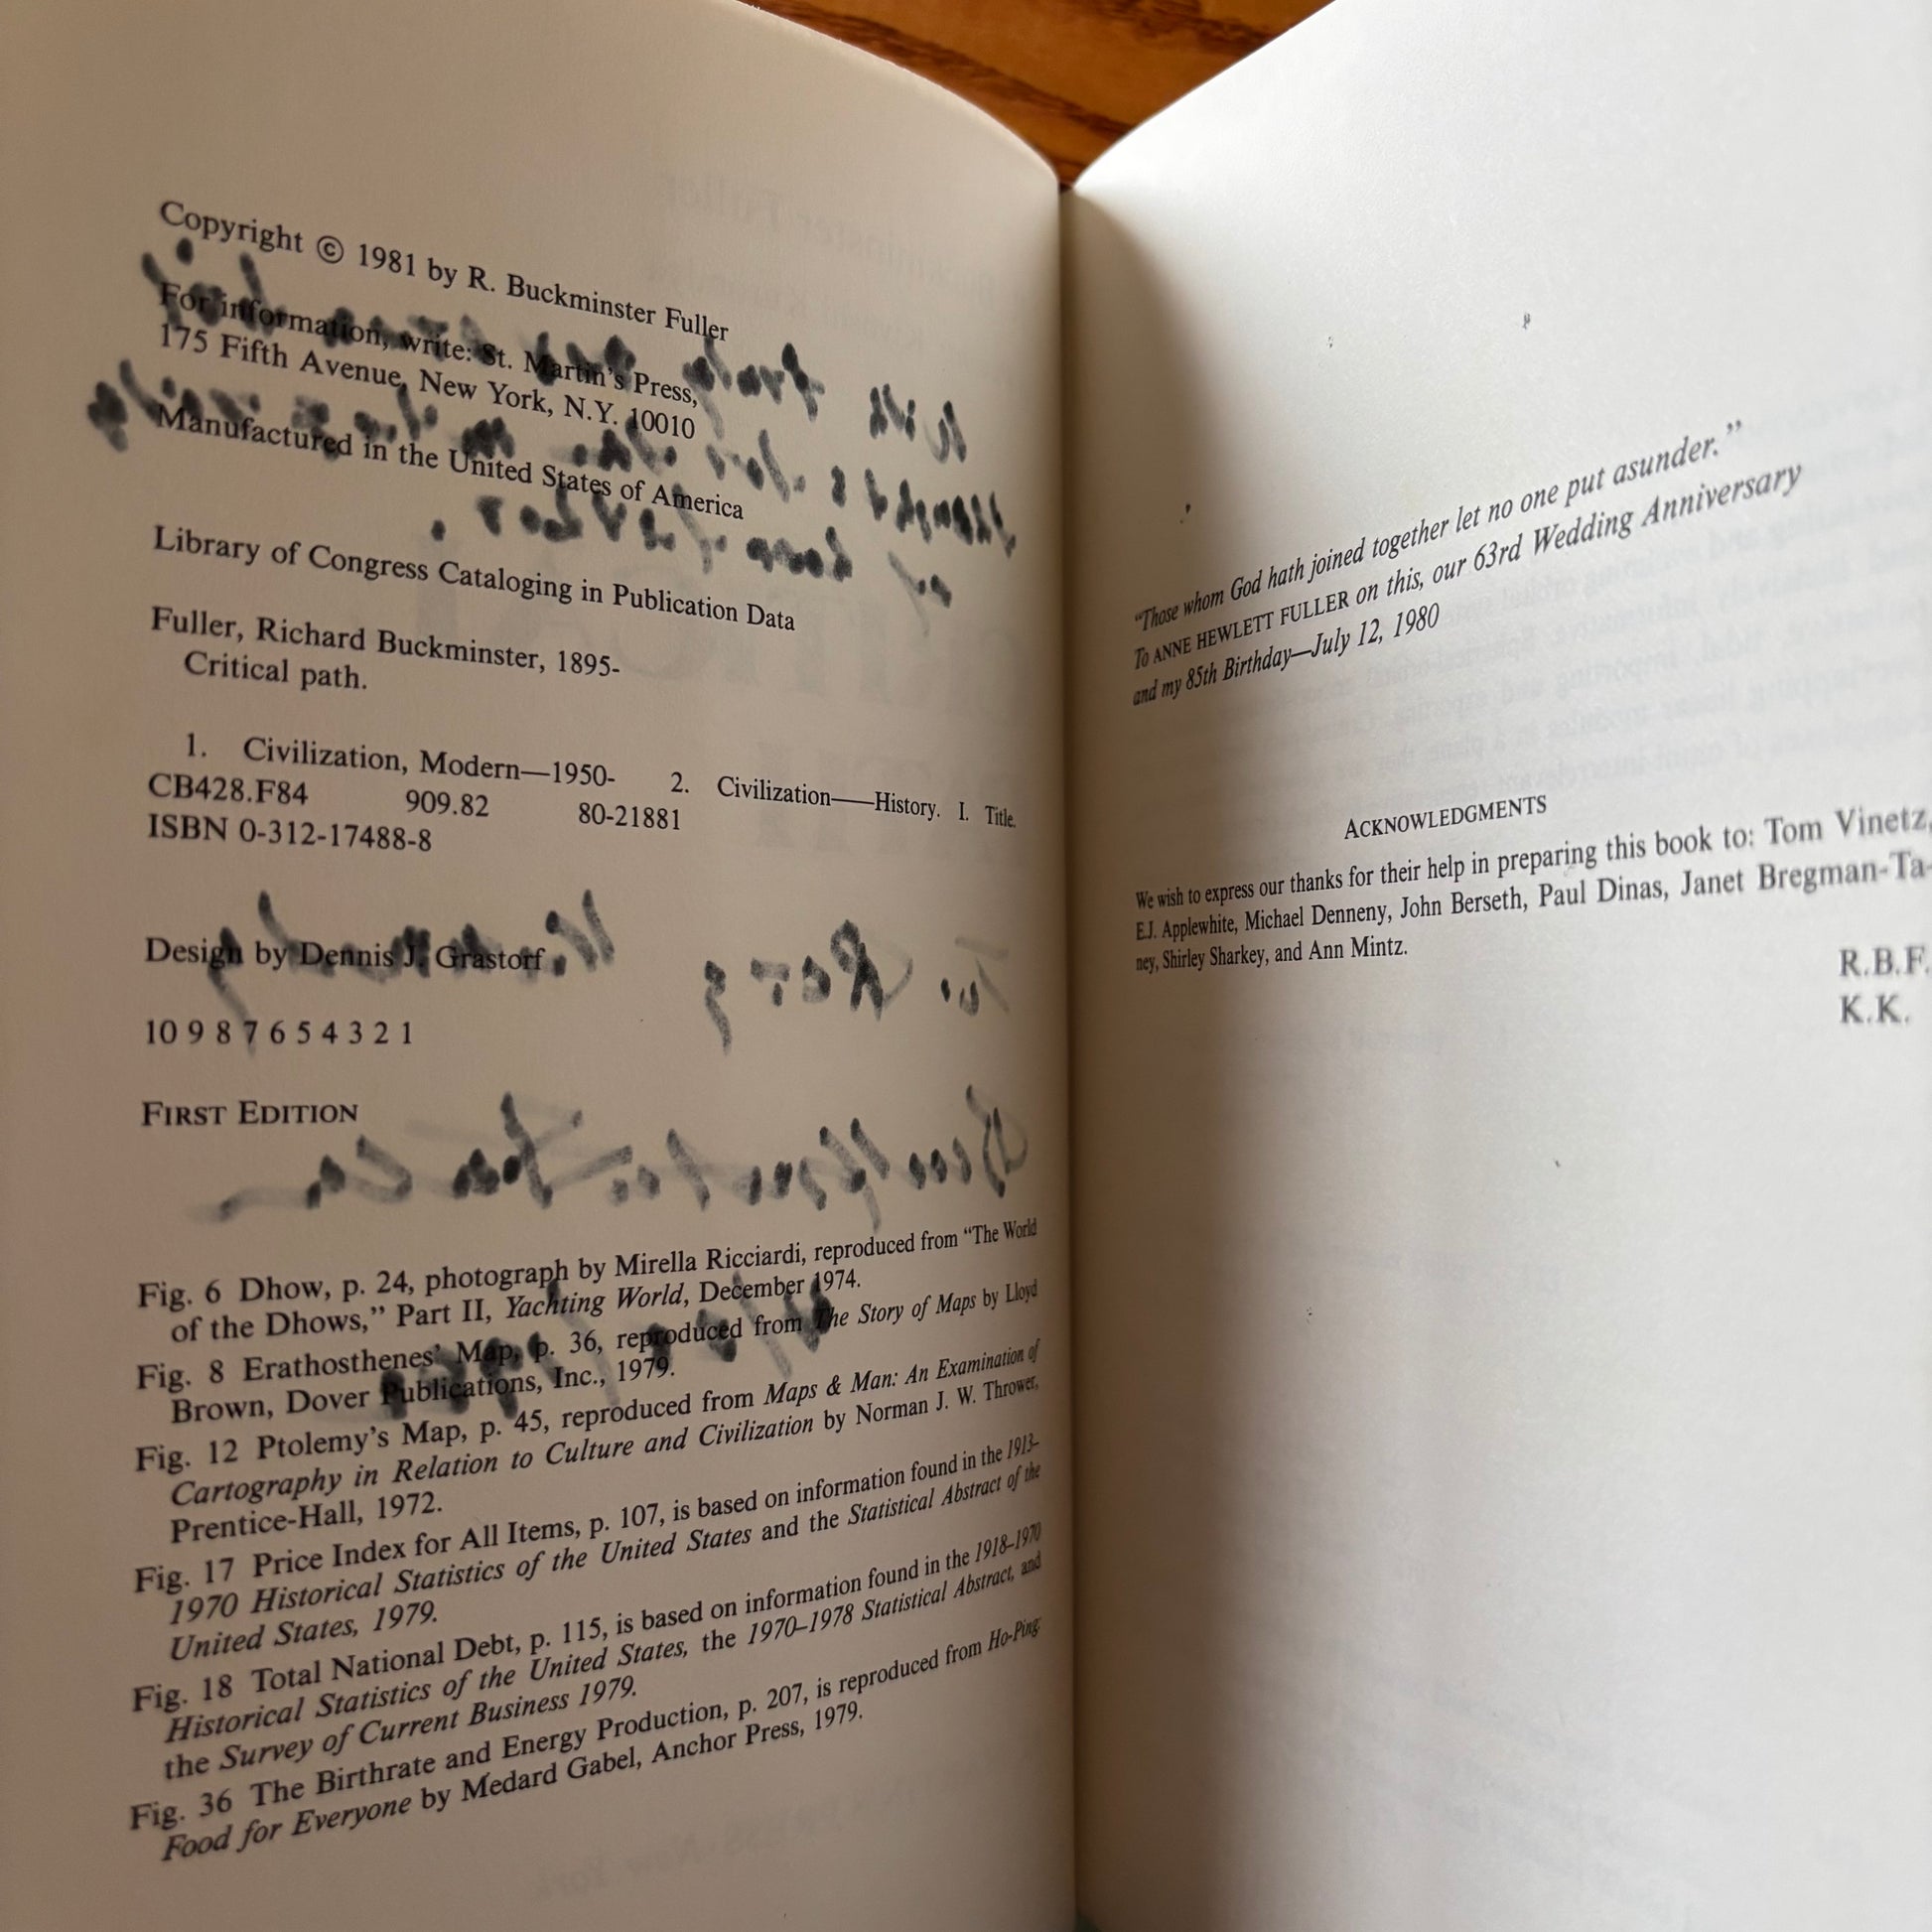 Copyright © 1981 by R. Buckminster Fuller
For information, write: St. Martin's Press,
175 Fifth Avenue, New York, N.Y. 10010
Manufactured in the United States of America
Library of Congress Cataloging in Publication Data
Fuller, Richard Buckminster, 1895-
Critical path.
1. Civilization, Modern—1950- 2. Civilization——History. I. Title.
CB428.F84 909.82 80-21881
ISBN 0-312-17488-8
Design by Dennis J. Grastorf
10 9 8 7 6 5 4 3 2 1
FIRST EDITION
Fig. 6 Dhow, p. 24, photograph by Mirella Ricciardi, reproduced from “The World
of the Dhows,” Part II, Yachting World, December 1974.
Fig. 8 Erathosthenes’ Map, p. 36, reproduced from The Story of Maps by Lloyd
Brown, Dover Publications, Inc., 1979.
Fig. 12 Ptolemy’s Map, p. 45, reproduced from Maps & Man: An Examination of
Cartography in Relation to Culture and Civilization by Norman J. W. Thrower,
Prentice-Hall, 1972.
Fig. 17 Price Index for All Items, p. 107, is based on information found in the 1913–
1970 Historical Statistics of the United States and the Statistical Abstract of the
United States, 1979.
Fig. 18 Total National Debt, p. 115, is based on information found in the 1918–1970
Historical Statistics of the United States, the 1970–1978 Statistical Abstract, and
the Survey of Current Business 1979.
Fig. 36 The Birthrate and Energy Production, p. 207, is reproduced from Ho-Ping:
Food for Everyone by Medard Gabel, Anchor Press, 1979.
“Those whom God hath joined together let no one put asunder.”
To ANNE HEWLETT FULLER on this, our 63rd Wedding Anniversary
and my 85th Birthday—July 12, 1980
ACKNOWLEDGMENTS
We wish to express our thanks for their help in preparing this book to: Tom Vinetz,
E.J. Applewhite, Michael Denneny, John Berseth, Paul Dinas, Janet Bregman-Ta-
ney, Shirley Sharkey, and Ann Mintz.
R.B.F.
K.K.